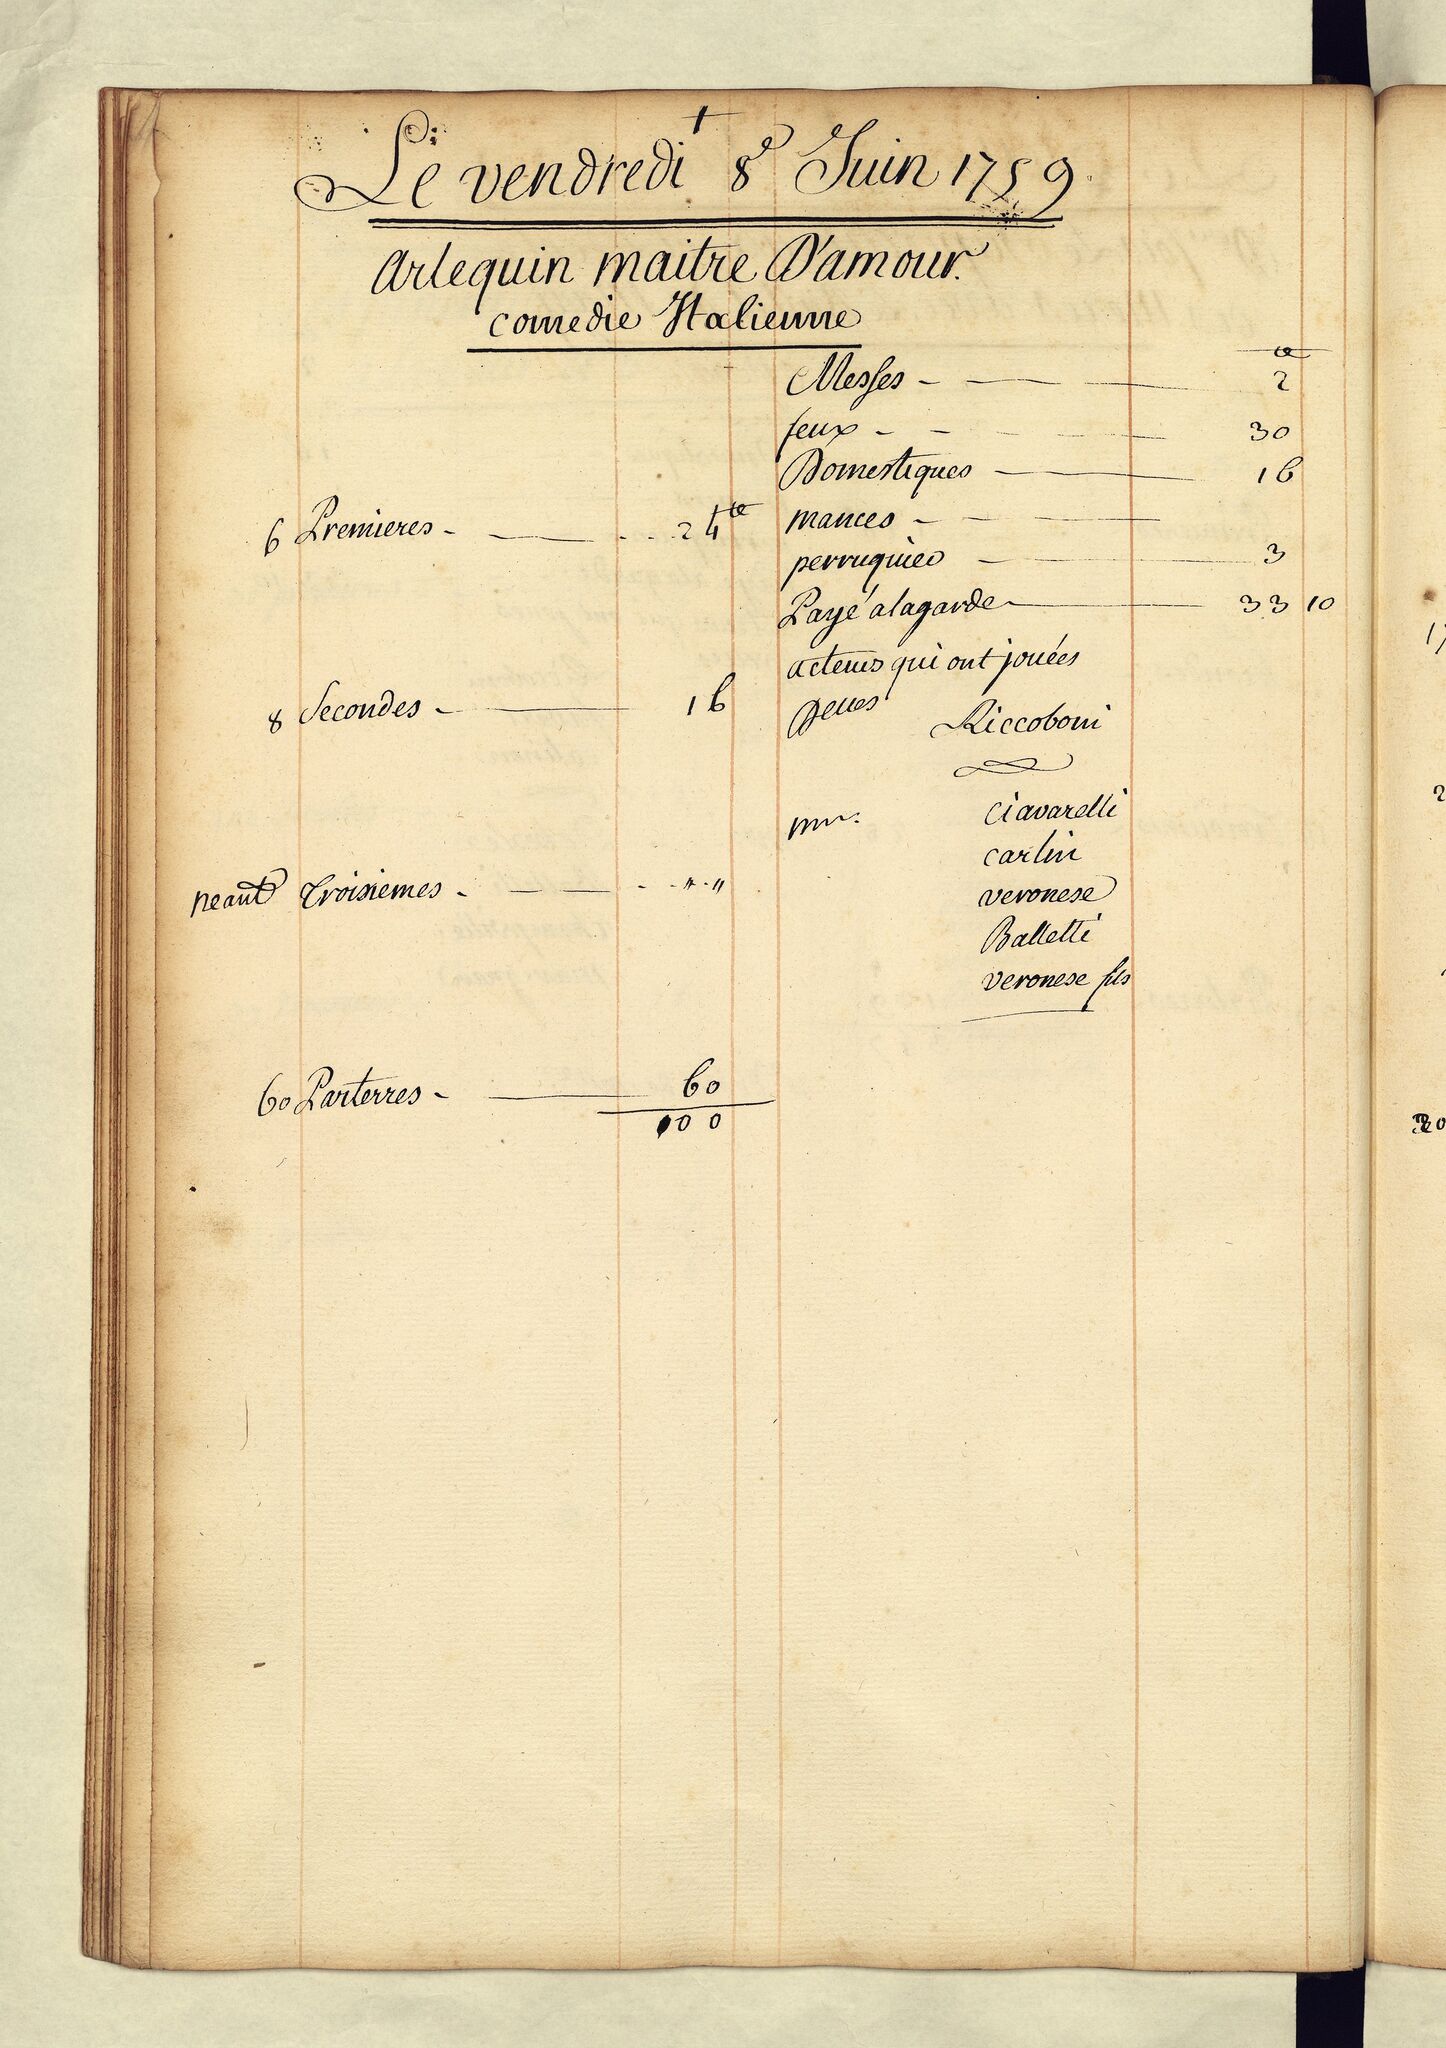 Le vendredi 8e Juin 1759
Arlequin maitre D'amour.
comedie Italienne
Messes - 2
feux - 30
Domestiques 16
6 Premieres - 24
mances -
perruquier 3
Payé a la garde 33 10
acteurs qui ont jouées
8 Secondes - 16
Delles Riccoboni
mrs. Ciavarelli
carlin
neant Troisiemes - " "
veronese
Balletti
veronese fils
60 Parterres - 60
100